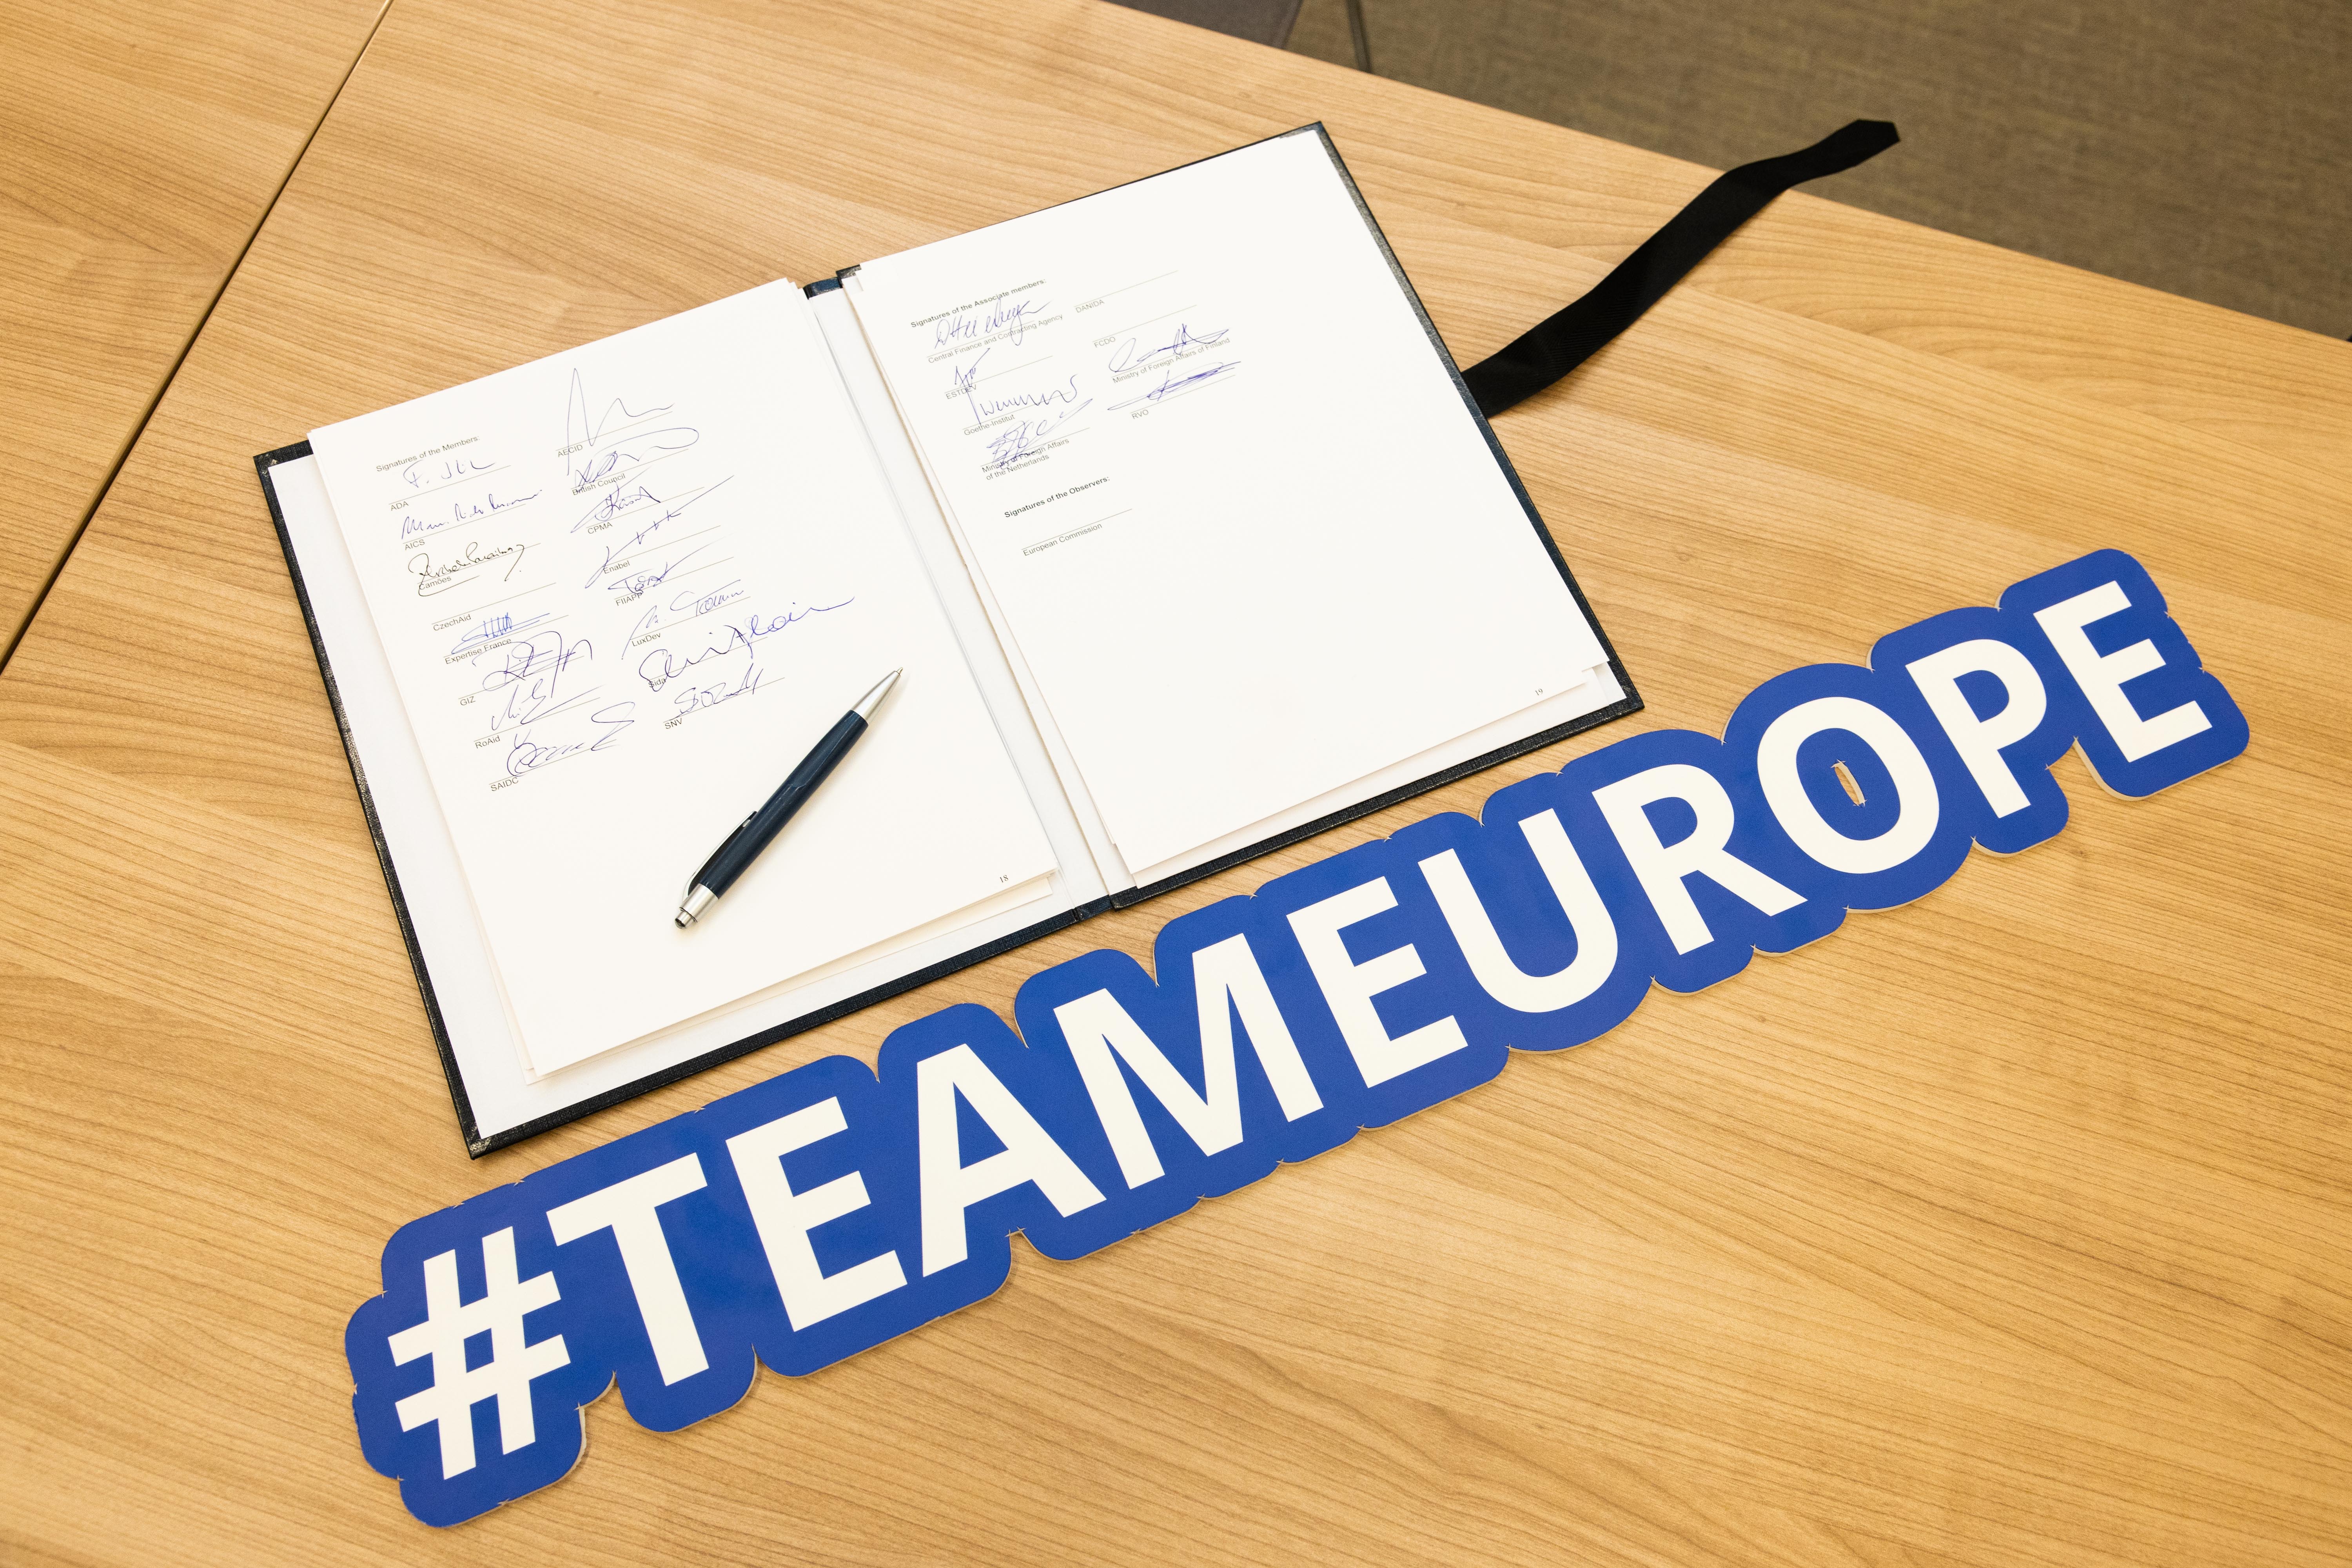 Signatures of the Members:
ADA
AECID
AICS
British Council
Camões
CPMA
CzechAid
Enabel
Expertise France
FIIAPP
GIZ
LuxDev
RoAid
Sida
SAIDC
SNV
18
Signatures of the Associate members:
Central Finance and Contracting Agency
DANIDA
ESTDEV
FCDO
Goethe-Institut
Ministry of Foreign Affairs of Finland
Ministry of Foreign Affairs
of the Netherlands
RVO
Signatures of the Observers:
European Commission
19
#TEAMEUROPE